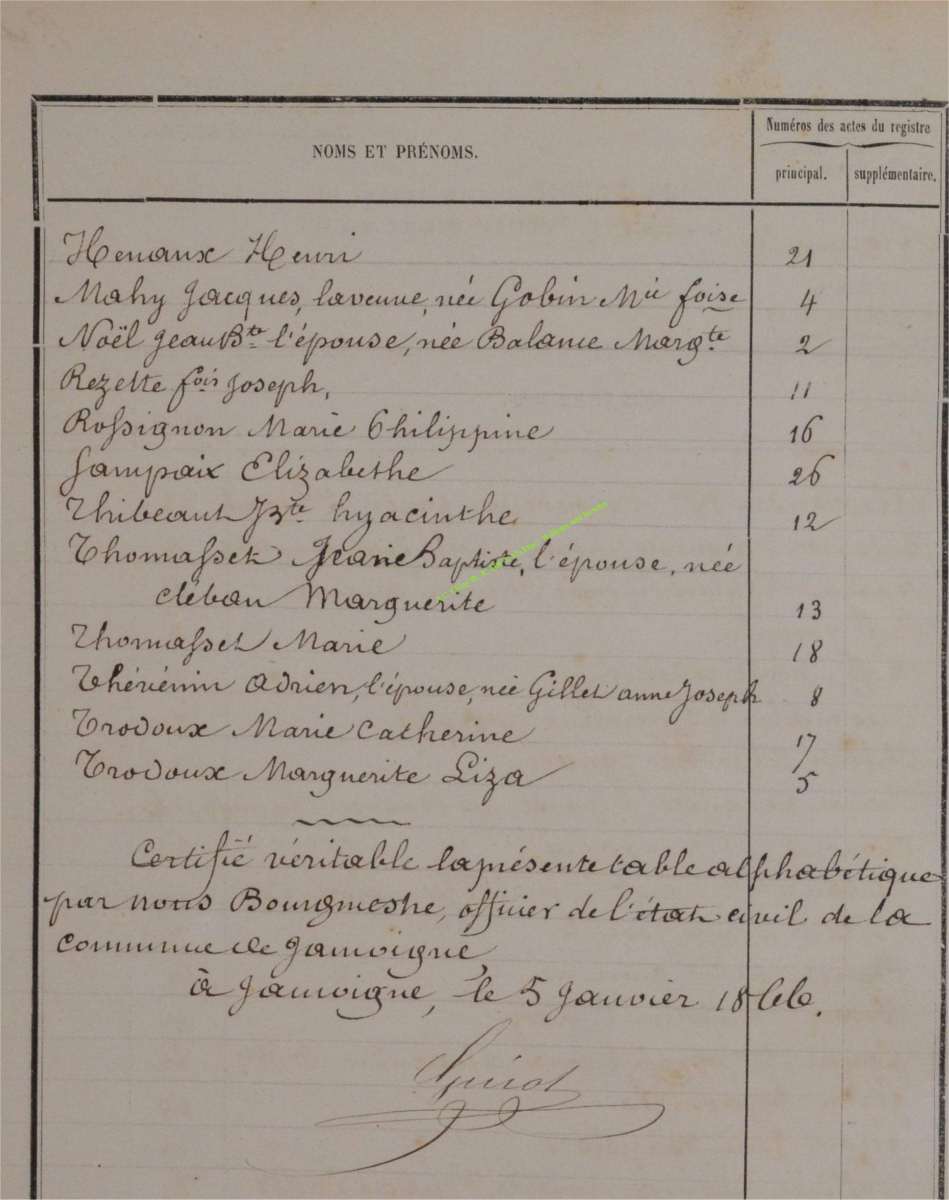 NOMS ET PRÉNOMS.
Numéros des actes du registre
principal.
supplémentaire.
Henaux Henri 21
Mahy Jacques, la veuve, née Gobin Mie foise 4
Noël Jean Bte l'épouse, née Balance Margte 2
Rezette fois Joseph, 11
Rossignon Marie Philippine 16
Sampaix Elizabethe 26
Thibeaut J Bte hyacinthe 12
Thomasset Jeane Baptiste, l'épouse, née
cleban Marguerite 13
Thomasset Marie 18
Adrien, l'épouse, née Gillet anne Joseph 8
Trodoux Marie Catherine 17
Trodoux Marguerite Liza 5
Certifié véritable la présente table alphabétique
par nous Bourgmestre, officier de l'état civil de la
commune de Jamoigne,
à Jamoigne, le 5 Janvier 1866.